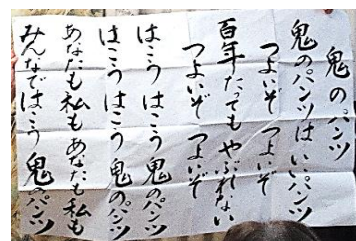 鬼のパンツ
鬼のパンツは いいパンツ
つよいぞ つよいぞ
百年たっても やぶれない
つよいぞ つよいぞ
はこう はこう 鬼のパンツ
はこう はこう 鬼のパンツ
あなたも 私も あなたも 私も
みんなで はこう 鬼のパンツ